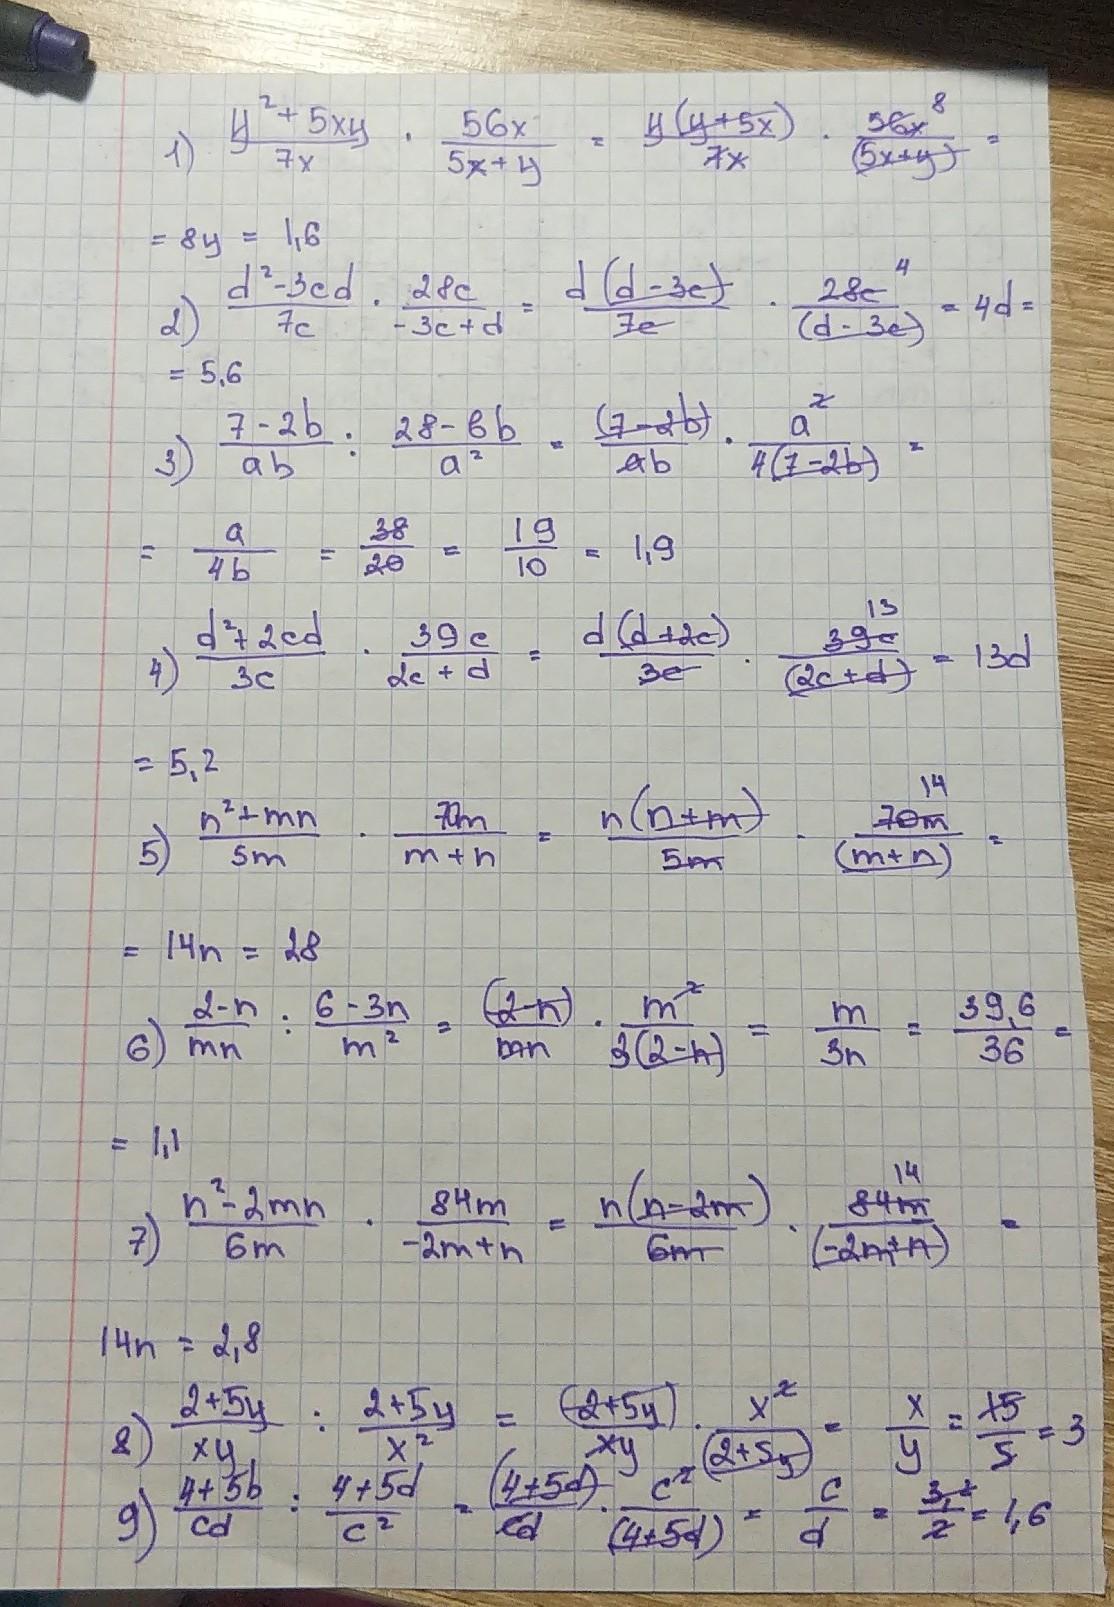 1) (y² + 5xy)/(7x) · (56x)/(5x + y) = (y(y + 5x))/(7x) · (56x⁸)/((5x+y)) =
= 8y = 1,6
2) (d² - 3cd)/(7c) · (28c)/(-3c + d) = (d(d - 3c))/(7c) · (28c⁴)/((d - 3c)) = 4d =
= 5,6
3) (7 - 2b)/(ab) : (28 - 8b)/(a²) = ((7 - 2b))/(ab) · (a²)/(4(7 - 2b)) =
= a/(4b) = 38/20 = 19/10 = 1,9
4) (d² + 2cd)/(3c) · (39c)/(2c + d) = (d(d + 2c))/(3c) · (39c¹³)/((2c + d)) = 13d
= 5,2
5) (n² + mn)/(5m) · (70m)/(m + n) = (n(n + m))/(5m) · (70m¹⁴)/((m + n)) =
= 14n = 28
6) (2 - n)/(mn) : (6 - 3n)/(m²) = ((2 - n))/(mn) · (m²)/(3(2 - n)) = m/(3n) = 39,6/36 =
= 1,1
7) (n² - 2mn)/(6m) · (84m)/(-2m + n) = (n(n - 2m))/(6m) · (84m¹⁴)/((-2m + n)) =
14n = 2,8
8) (2 + 5y)/(xy) : (2 + 5y)/(x²) = ((2 + 5y))/(xy) · (x²)/((2 + 5y)) = x/y = 15/5 = 3
9) (4 + 5b)/(cd) : (4 + 5d)/(c²) = ((4 + 5d))/(cd) · (c²)/((4 + 5d)) = c/d = 3,2/2 = 1,6